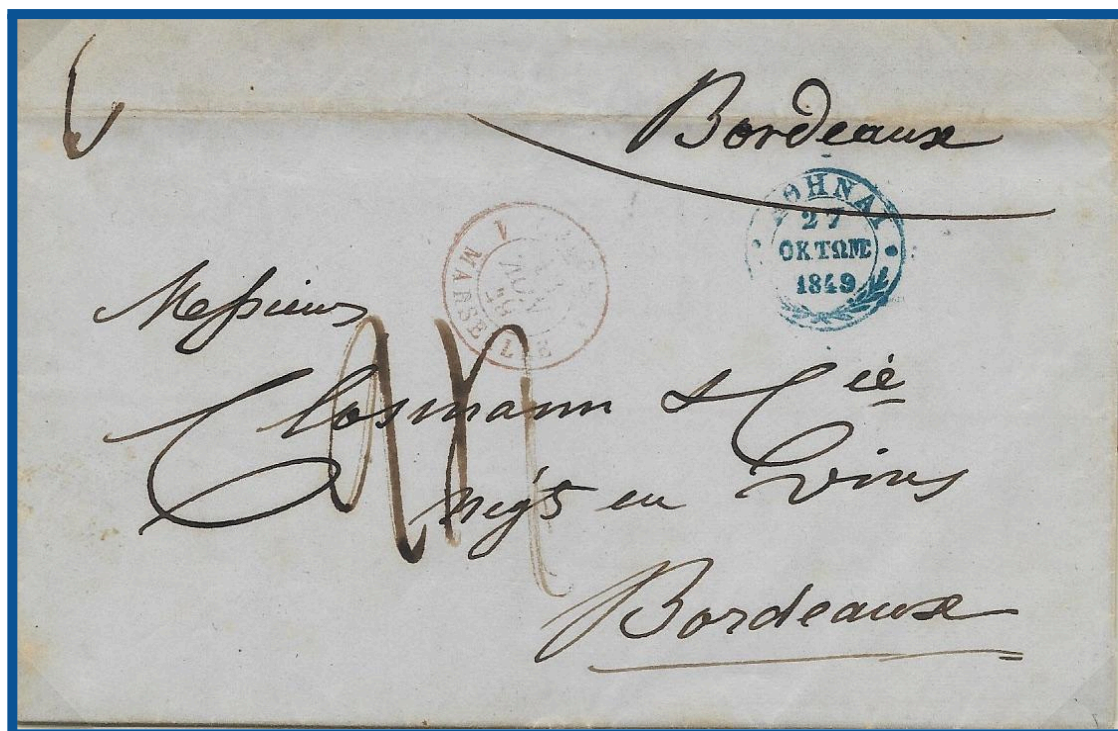 Bordeaux
ΑΘΗΝΑΙ
27
ΟΚΤΩΒ
1849
1 MARSEILLE
Messieurs
Closmann & Cie
négts en vins
Bordeaux